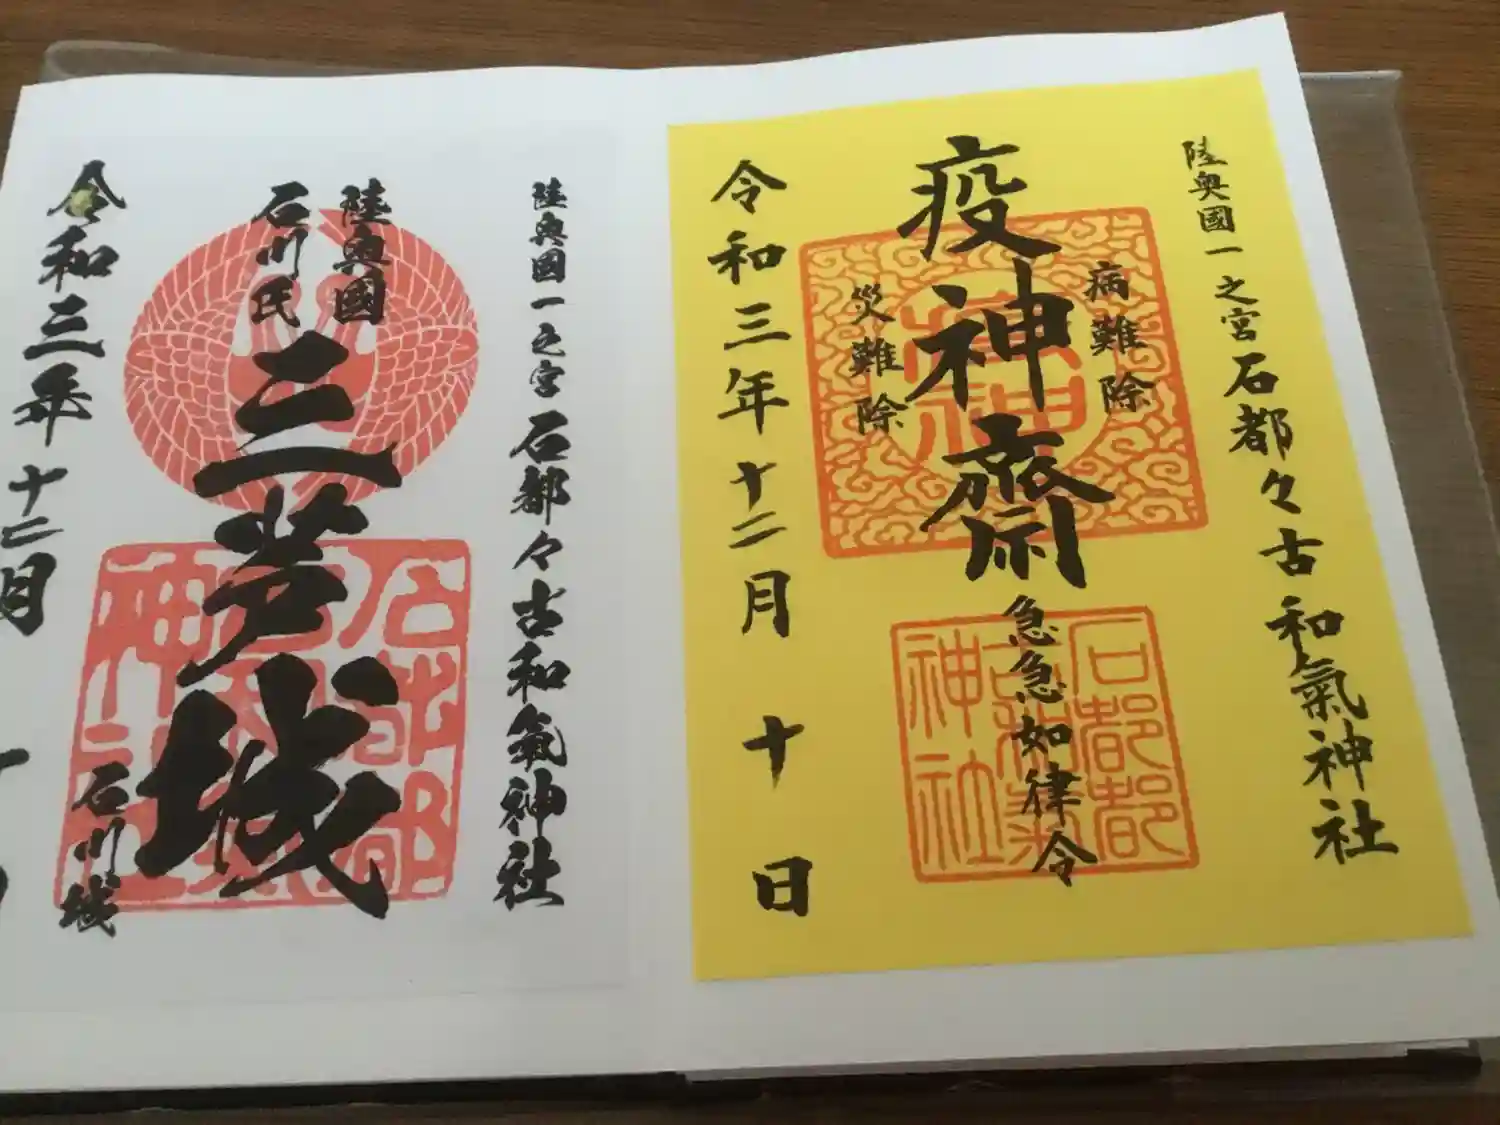 陸奥國一之宮石都々古和氣神社
病難除
疫神齋
災難除
急急如律令
石都都古和氣神社
令和三年十二月十日
陸奥国一之宮石都々古和氣神社
陸奥國
石川氏
三芦城
石川城
令和三年十二月